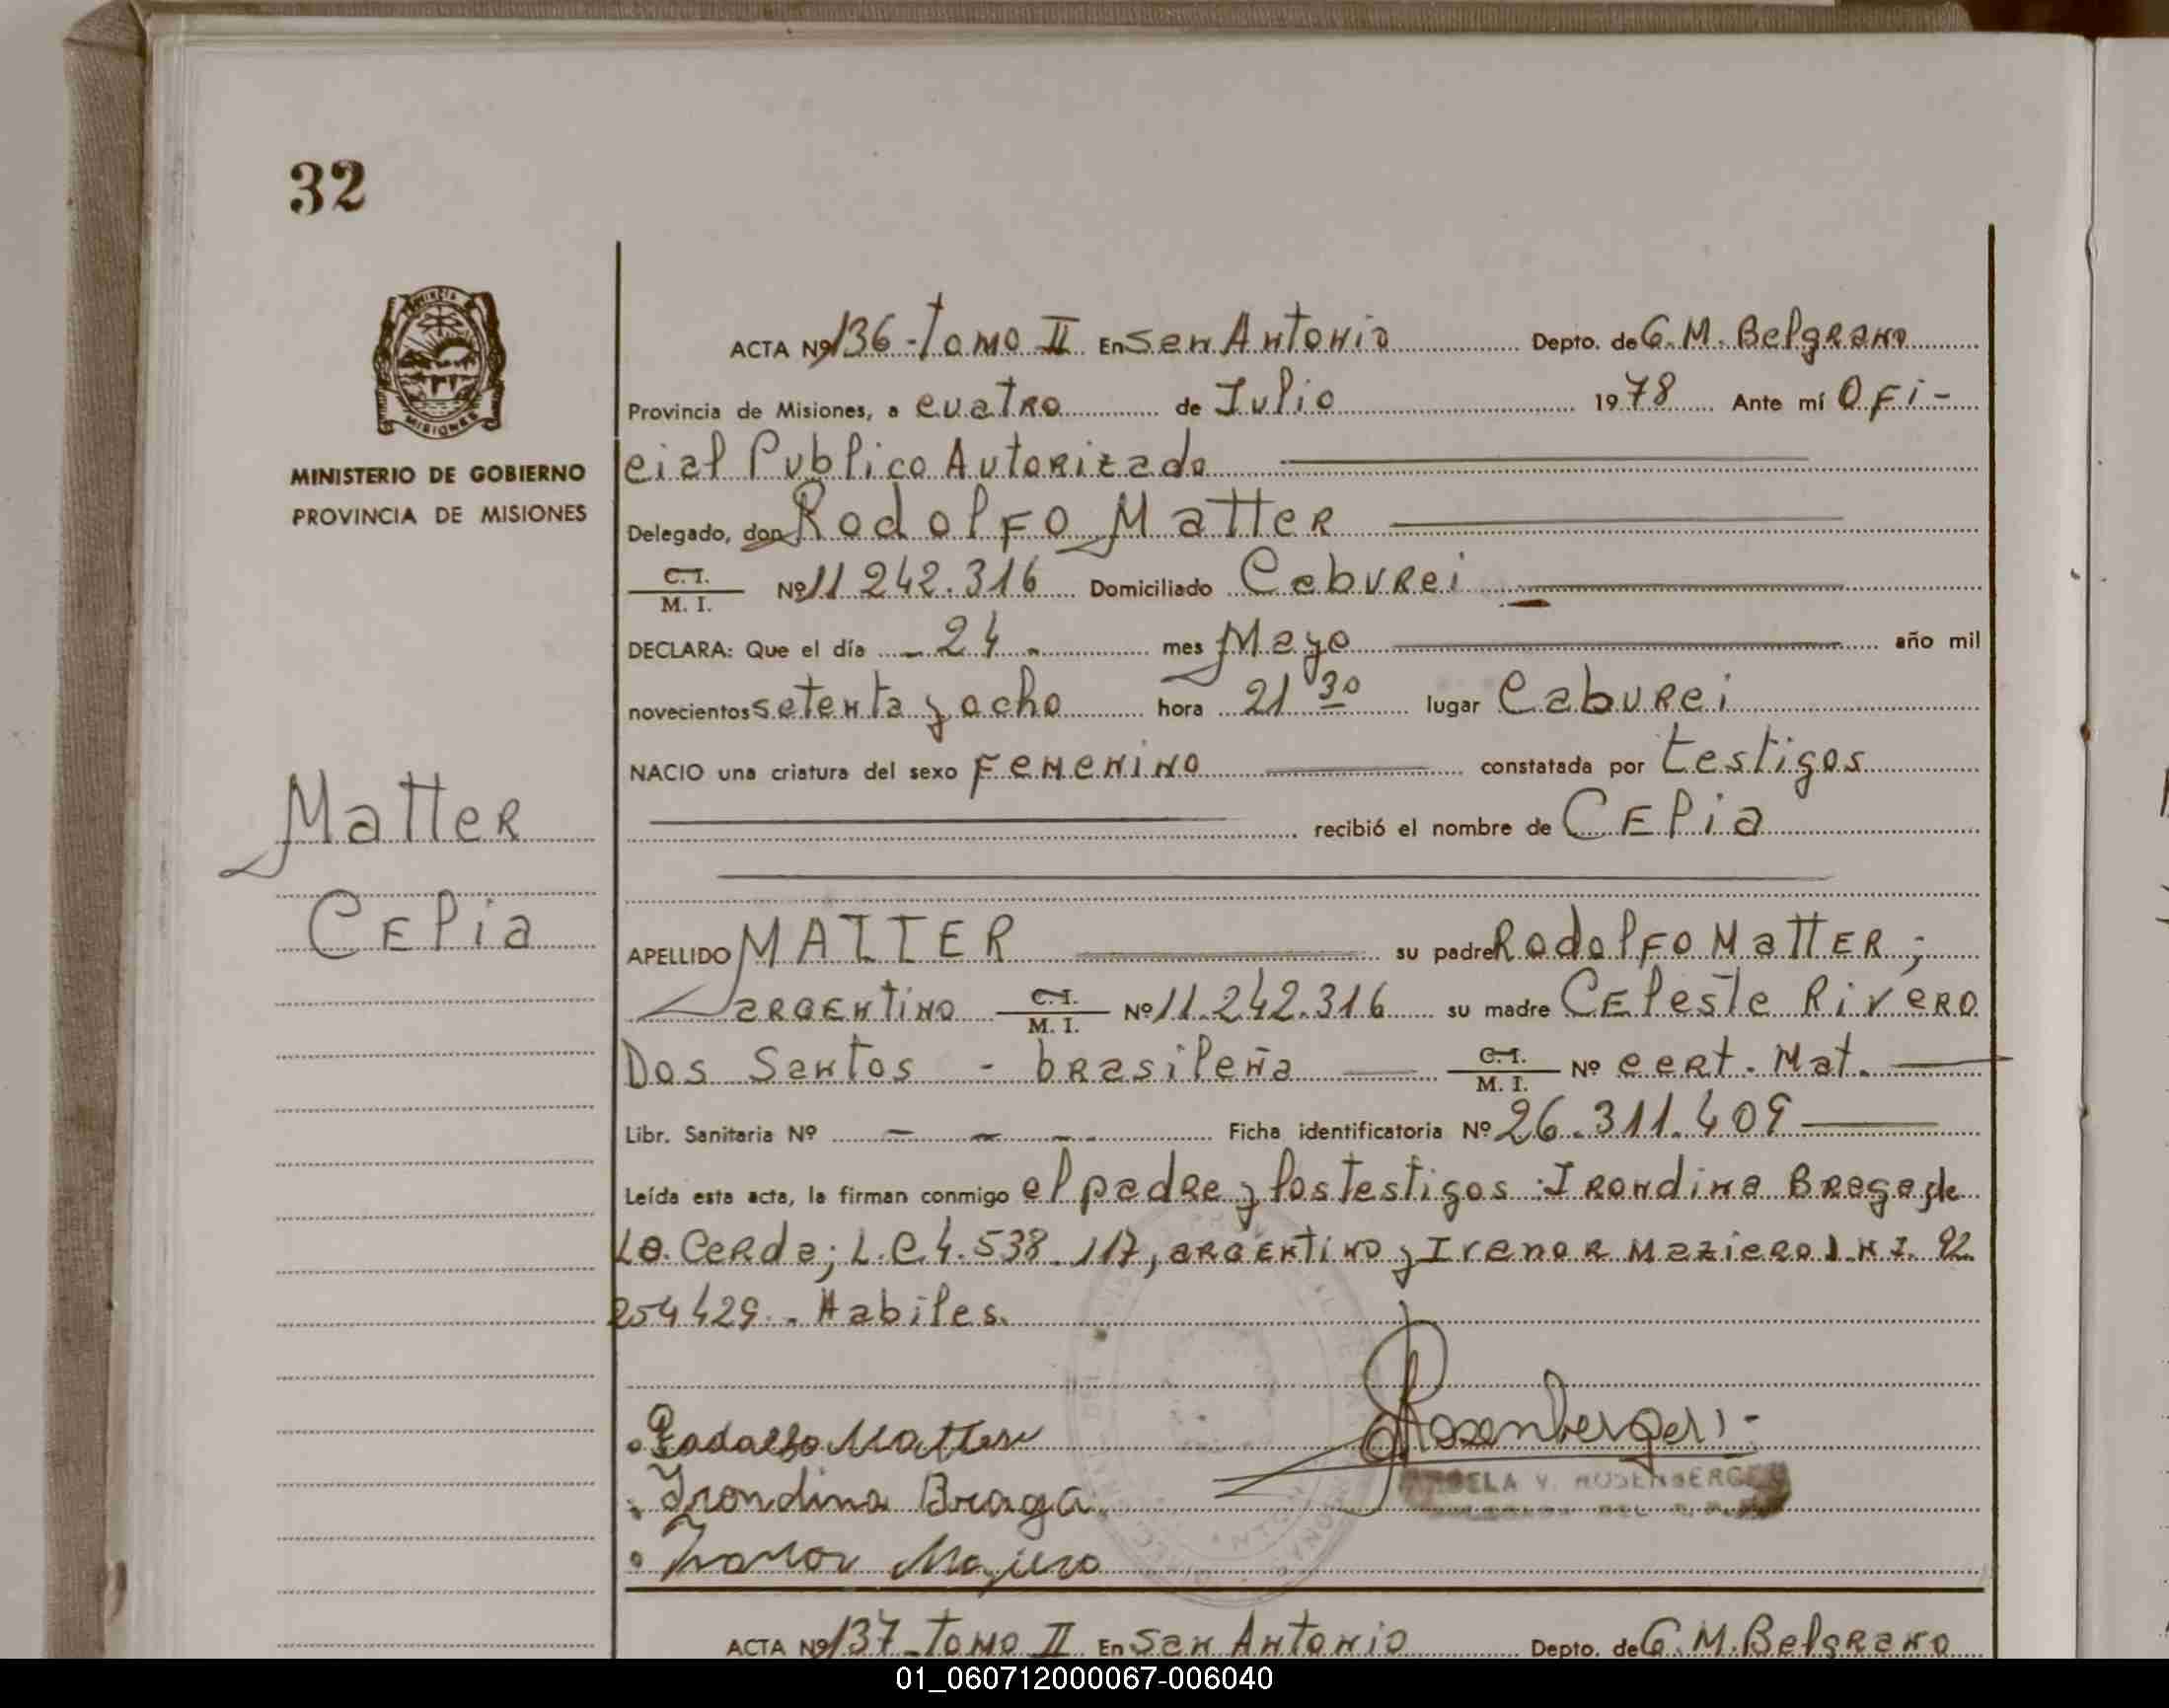 32
PROVINCIA
MISIONES
MINISTERIO DE GOBIERNO
PROVINCIA DE MISIONES
Matter
Celia
ACTA Nº 136 - Tomo II En San Antonio Depto. de G. M. Belgrano
Provincia de Misiones, a cuatro de Julio 1978 Ante mí Ofi-
cial Publico Autorizado
Delegado, don Rodolfo Matter
C. I. / M. I. Nº 11.242.316 Domiciliado Caburei
DECLARA: Que el día - 24 - mes Mayo año mil
novecientos setenta y ocho hora 21 30 lugar Caburei
NACIO una criatura del sexo Femenino constatada por testigos
recibió el nombre de Celia
APELLIDO MATTER su padre Rodolfo Matter ;
argentino C. I. / M. I. Nº 11.242.316 su madre Celeste Rivero
Dos Santos - brasileña C. I. / M. I. Nº cert. Mat.
Libr. Sanitaria Nº - - - Ficha identificatoria Nº 26.311.409
Leída esta acta, la firman conmigo el padre y los testigos : Irondina Braga de
La Cerda; L.C 4.538.117, argentino y Irenor Maziero D.N I. 92.
254429.. Habiles.
Rodolfo Matter
Rosenberger
Irondina Braga
V. ROSENBERGER
Irenor
ACTA Nº 137 - Tomo II En San Antonio Depto. de G. M. Belgrano
01_060712000067-006040